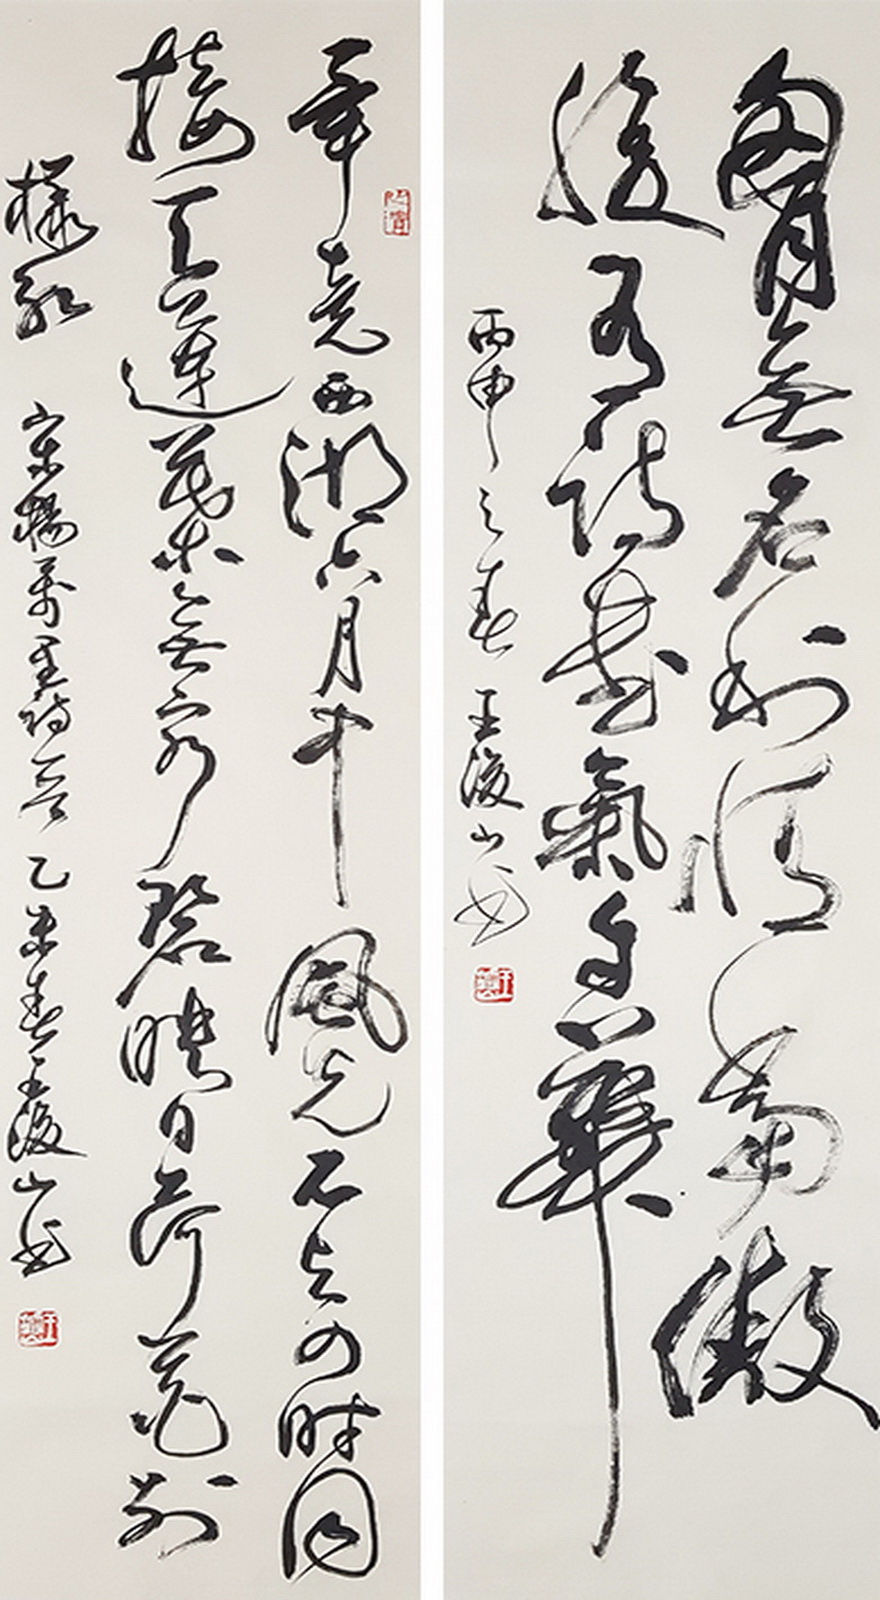 胸無名利情傲
腹有詩書氣自華
丙申之春 王浚山書
畢竟西湖六月中風光不与四時同
接天蓮葉無窮碧映日荷花别
樣紅 宋楊萬里詩一首 乙未春王浚山書